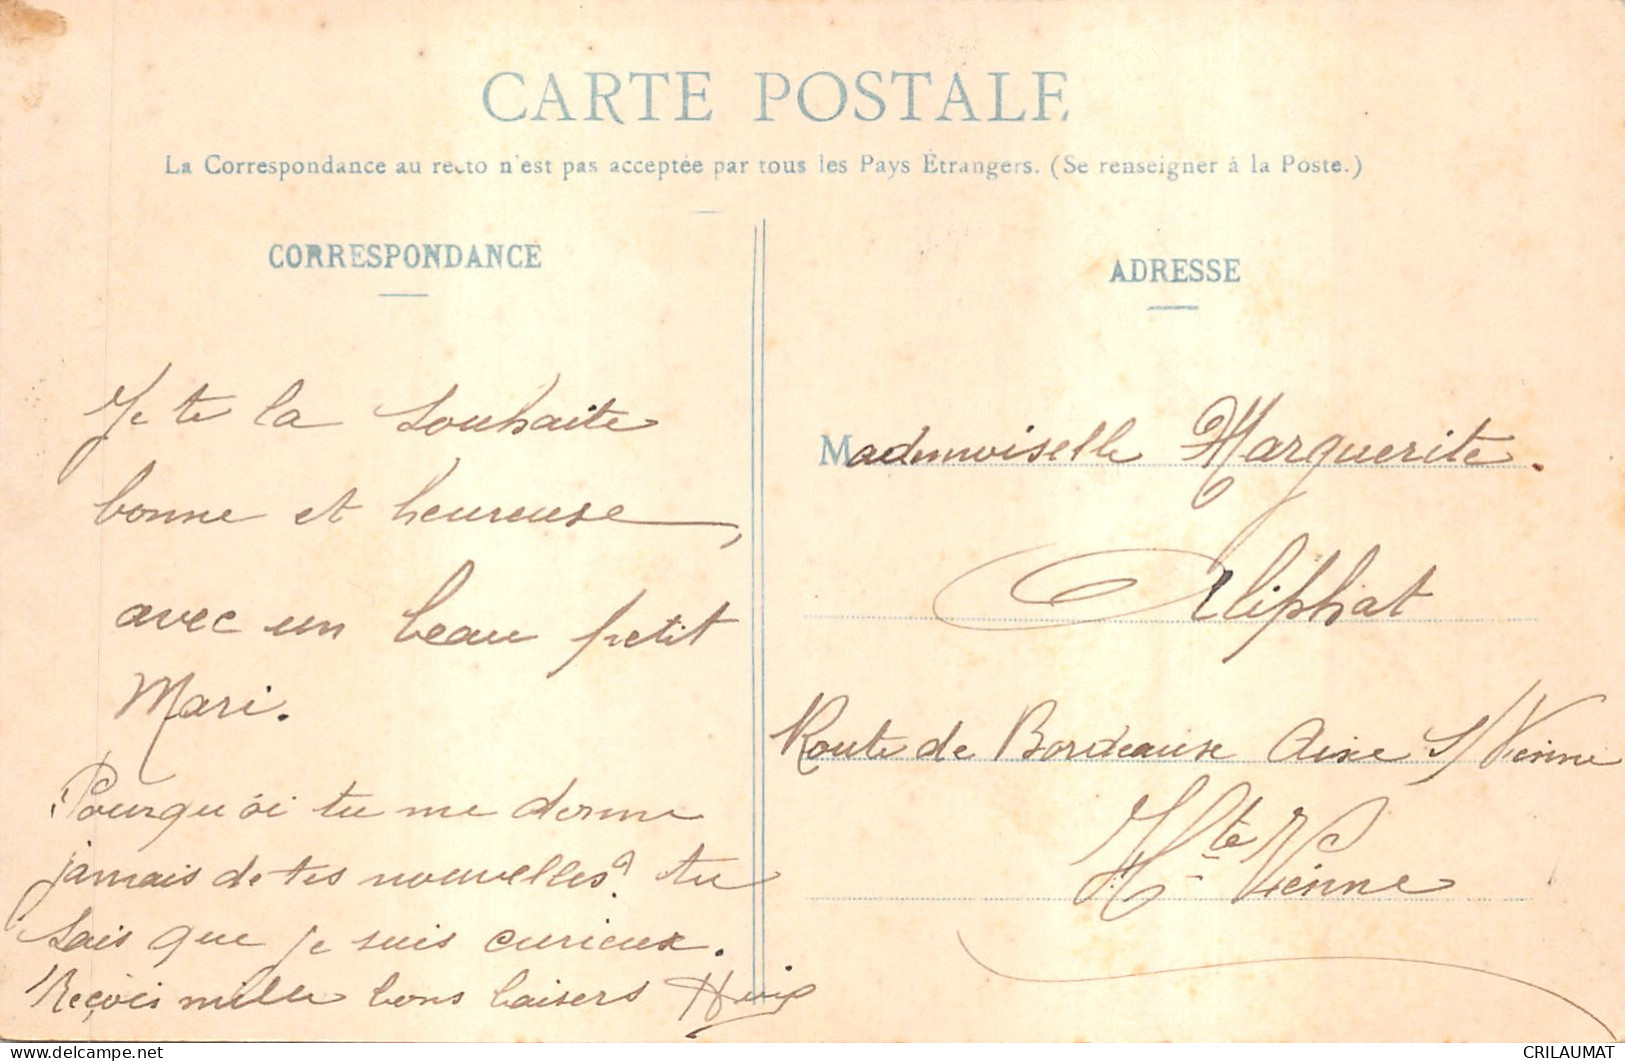 CARTE POSTALE
La Correspondance au recto n'est pas acceptée par tous les Pays Étrangers. (Se renseigner à la Poste.)
CORRESPONDANCE
Je te la souhaite
bonne et heureuse,
avec un beau petit
Mari.
Pourquoi tu me donne
jamais de tes nouvelles? tu
sais que je suis curieux.
Reçois mille bons baisers
ADRESSE
Mademoiselle Marguerite.
Aliphat
Route de Bordeaux Aixe s/ Vienne
Hte Vienne
CRILAUMAT